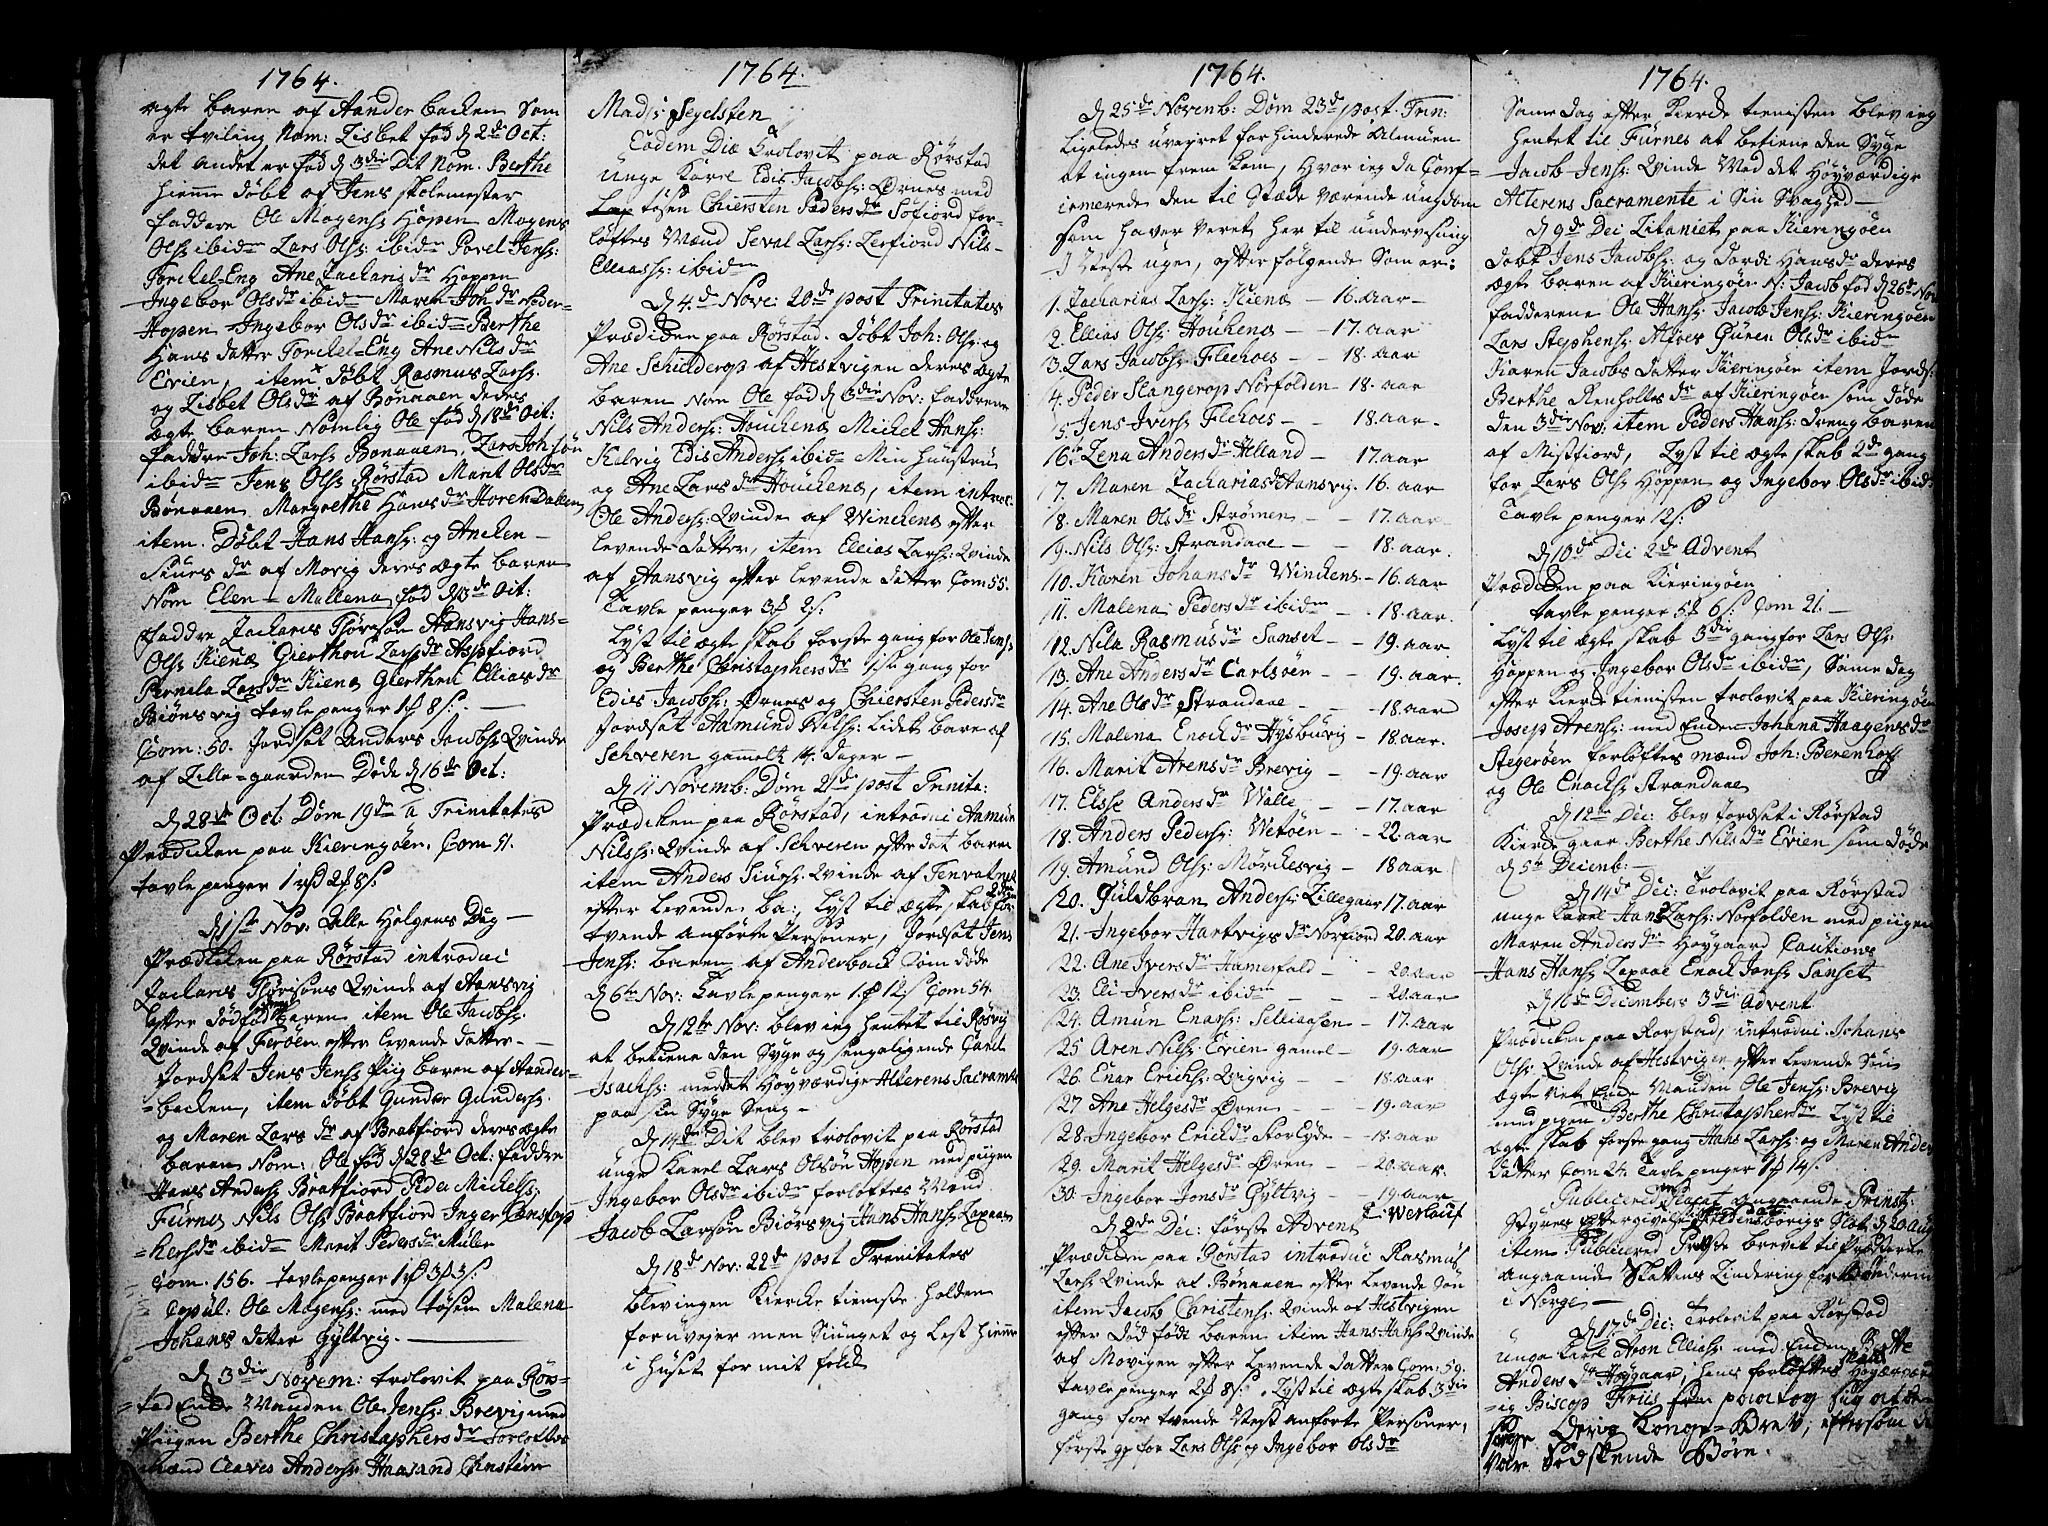 1764.
ægte baren af Aanderbacken som
er tviling Nom: Lisbet fød d 2de Oct:
det andet er fød d 3die Dit Nom. Berthe
hiemme døbt af Jens skolemester
faddere Ole Mogens: Hopen Mogens
Ols: ibidm Lars Ols: ibidm Povel Jens:
Torchel-Eng Ane Zacharis dr Hoppen
Ingebor Olsdr ibidm Maren Joh dr Neder-
Hopen Ingebor Olsdr ibidm Berthe
Hans datter Torckel-Eng Ane Nils dr
Evien, item døbt Rasmus Lars:
og Lisbet Olsdr af Bonaaen deres
ægte baren Nomlig Ole fød d 18de Oct:
faddre Joh: Lars: Bonaaen, Lars Joh:søn
ibidm Jens Ols: Rørstad Marit Olsdr
Bonaaen Margrethe Hansdr Horendallen
item. Døbt Hans Hans: og Anelen
Siurs dr af Movig deres ægte baren
Nom Elen-Mallena fød d 13de Oct:
Faddre Zacharis Tiørisøn Aansvig Hans-
Ols: Kienæ Gierthru Larsdr Aspfiord
Pernila Larsdr Kienæ Gierthru Elliasdr
Biønsvig tavlepenger 1 8 s:
Com: 50. Jordsat Anders Jacobs: Qvinde
af Lille-gaarden Døde d 16de Oct:
d 28de Oct. Dom 19de a Trinitates
Prædicken paa Kieringøen. Com 51.
tavlepenger 1 rd 2 8 s:
d 1ste Nov: Alle Helgens Dag
Prædicken paa Rørstad introduc
Zacharis Tiørisøns Qvinde af Aansvig
efter dødfød baren item Ole Jacobs:
Qvinde af Ferøen efter levende datter
Jordsat Jens Jens: Piig baren af Aander-
backen, item døbt Gunder Gunders:
og Maren Lars dr af Bratfiord deres ægte
baren Nom: Ole fød d 28de Oct: faddre
Hans Anders: Bratfiord Peder Michels:
Furnes Nils Ols: Bratfiord Inger Christop
hersdr ibidm Marit Pedersdr Mulen
Com. 156. tavlepenger 1 rd 3 3 s:
Copul: Ole Mogens: med tøsen Malena
Johans datter Gyltvig.
d 3die Novem: trolovit paa Rør-
stad Enke Manden Ole Jens: Brevig med
Piigen Berthe Christaphersdr forløftes
mænd Claves Anders: Haasand
1764.
Mads: Segelsten
Eodem Die trolovit paa Rørstad
unge Karl Edis Jacobs: Ørnes med
tøsen Chiersten Peders dr Søfiord for-
løftes Mænd Seval Lars: Lerfiord Nils-
Ellias: ibidm
d 4de Nov: 20de post Trinitates
Prædicken paa Rørstad. Døbt Joh: Ols: og
Ane Schielderop af Hestvigen deres ægte
baren Nom Ole fød d 3die Nov: faddrene
Nils Anders: Houchenæ Michel Hans:
Kalvig Edis Anders: ibidm Min Huustru
og Ane Lars dr Houchenæ, item introc:
Ole Anders: Qvinde af Winckenæ efter
levende datter, item Ellias Lars: Qvinde
af Aansvig efter levende datter Com 55.
Tavle penger 3 2 s:
Lyst til ægte skab første gang for Ole Jens:
og Berthe Christaphersdr iste gang for
Edis Jacobs: Ørnes og Chiersten Pedersdr
Jordsat Aamund Nils: Lidet baren af
Schveren gammelt 14 dager
d 11 Novemb: Dom 21de post Trinita:
Prædicken paa Rørstad, introduc Aamun
Nils: Qvinde af Schveren efter døt baren
item Anders Siurs: Qvinde af Tenvatnet
efter levende ba:, Lyst til ægte skab 2den for
tvende anførte Personer, Jordsat Jens
Jens: baren af Anderback som døde
d 6te Nov: Tavlepenger 1 12 s Com 54.
d 12te Nov: blev ieg hentet til Røsvig
at betiene den Syge og sengaligende
Isachs: med det Høyværdige Alterens Sacrament
paa sin Syge Seng
d 14de Dit blev trolovit paa Rørstad
unge Karel Lars Olsøn Hopen med piigen
Ingebor Olsdr ibidm forløftes Mænd
Jacob Larsøn Biørsvig Hans Hans: Laxaaen
d 18de Nov: 22de post Trenitates
blev ingen Kiercke tieniste holden
for uvejer men Siunget og Lest hiemme
i Huset for mit folck
1764.
d 25de Novemb: Dom 23de post Trin:
Ligeledes uvejret forhinderede Almuen
at ingen frem kom, hvor ieg da Conf-
iermerede den til Stæde værende ungdom
som haver veret her til undervisning
I Neste uger, efter følgende Som er:
1. Zacharias Lars: Kienæ — 16. aar
2. Ellias Ols: Houchenæ — 17. aar
3. Lars Jacobs: Flechoes — 18. aar
4. Peder Slangerop Norfolden — 18. aar
5. Jens Ivers: Flechoes — 18. aar
6. Lena Anders dr Helland — 17. aar
7. Maren Zacharias dr Aansvig. 16. aar
8. Maren Ols dr Strømen — 17. aar
9. Nils Ols: Strandaae — 18. aar.
10. Karen Johans dr Winckens — 16. aar
11. Malena Peders dr ibidm — 18. aar
12. Nila Rasmus dr Sanset — 19. aar
13. Ane Anders dr Carlsøen — 19. aar.
14. Ane Ols dr Strandaae — 18. aar
15. Malena Enock dr Hysbuvig — 18. aar.
16. Marit Arens dr Brevig — 19. aar
17. Elsse Anders dr Walle — 17. aar
18. Anders Peders: Wetøen — 22. aar
19. Amund Ols: Mørchesvig — 18 aar
20. Guldbran Anders: Lillegaar 17. aar
21. Ingebor Hartvigs dr Norfiord 20. aar
22. Ane Ivers dr Hamerfald — 20. aar
23. Eli Ivers dr ibidm — 20. aar
24. Amun Enars: Selliaasen — 17. aar
25 Aren Nils: Evien gamel — 19. aar
26. Enar Erichs: Qvigvig — 18. aar
27 Ane Helges dr Øren — 19. aar
28. Ingebor Erick dr Storeyde — 18. aar
29. Marit Helges dr Øren — 20. aar
30. Ingebor Jons dr Gyltvig — 19. aar
Werlauf
d 2de Dec: første Advent
Prædicken paa Rørstad introduc Rasmus
Lars: Qvinde af Bonaaen efter levende Søn
item Jacob Christens: Qvinde af Hestvigen
efter død født baren item Hans Hans: Qvinde
af Movigen efter levende datter Com: 59.
tavlepenger 2 8 s: Lyst til ægte skab 3die
gang for tvende Nest anførte Personer,
første g: for Lars Ols: og Ingebor Olsdr
1764.
Same dag efter Kierde tienisten blev ieg
hentet til Furnes at betiene den Syge
Jacob Jens: Qvinde Med det Høyværdige
Alterens Sacramente i Sin Svaghed
d 9de Dec Litaniet paa Kieringøen
døbt Jens Jacobs: og Dordi Hansdr deres
ægte baren af Kieringøen N: Jacob fød d 26de Nov
fadderene Ole Hans: Jacob Jens: Kieringøen
Lars Stephens: Alnes Guren Olsdr ibidm
Karen Jacobs datter Kieringøen item Jords:
Berthe Renholts dr af Kieringøen som døde
den 3die Nov: item Peders Hans: dreng baren
af Mistfiord, Lyst til ægte skab 2de gang
for Lars Ols: Hoppen og Ingebor Olsdr ibidm
Tavle penger 12 s:
d 10de Dec 2de Advent
Prædicken paa Kieringøen
tavle penger 5 6 s: Com 21.
Lyst til ægte skab 3die gang for Lars Ols:
Hoppen og Ingebor Olsdr ibidm, Same dag
efter Kierde tienisten trolovit paa Kieringøen
Josep Arens: med Enken Johana Haagensdr
Stegerøen forløftes mænd Joh: Berenhoft
og Ole Enocks: Strandaae
d 12te Dec: blev Jordsat i Rørstad
Kierde gaar Berthe Nils dr Evien som døde
d 5te Decemb:
d 14de Dec: Trolovit paa Rørstad
unge Karel Hans Lars: Norfolden med piigen
Maren Anders dr Høygaard Cautions
Hans Hans: Laxaae Enock Jens: Sanset
d 16de Decembers 3die Advent
Prædicken paa Rørstad, introduc Johans
Ols: Qvinde af Hestvigen efter levende Søn
ægte viet Enke Manden Ole Jens: Brevig
med pigen Berthe Christaphersdr Lyst til
ægte skab første gang Hans Lars: og Maren Anders
datter Com 24. Tavle penger 1 14 s:
Publicered angaaende Prinst:
Styres Slot d 20 Aug
item Publicered brevet til Prædderne
angaaende Skattens Lindering for Bønderne
i Norge
d 17de Dec: Trolovit paa Rørstad
unge Karl Aron Ellias: med Enken Birthe
Anders dr Høygaar, hans forløftes Mænd
Biscop Friis
Derig Konge-Brev, eftersom de
Være Sødskende Børn.